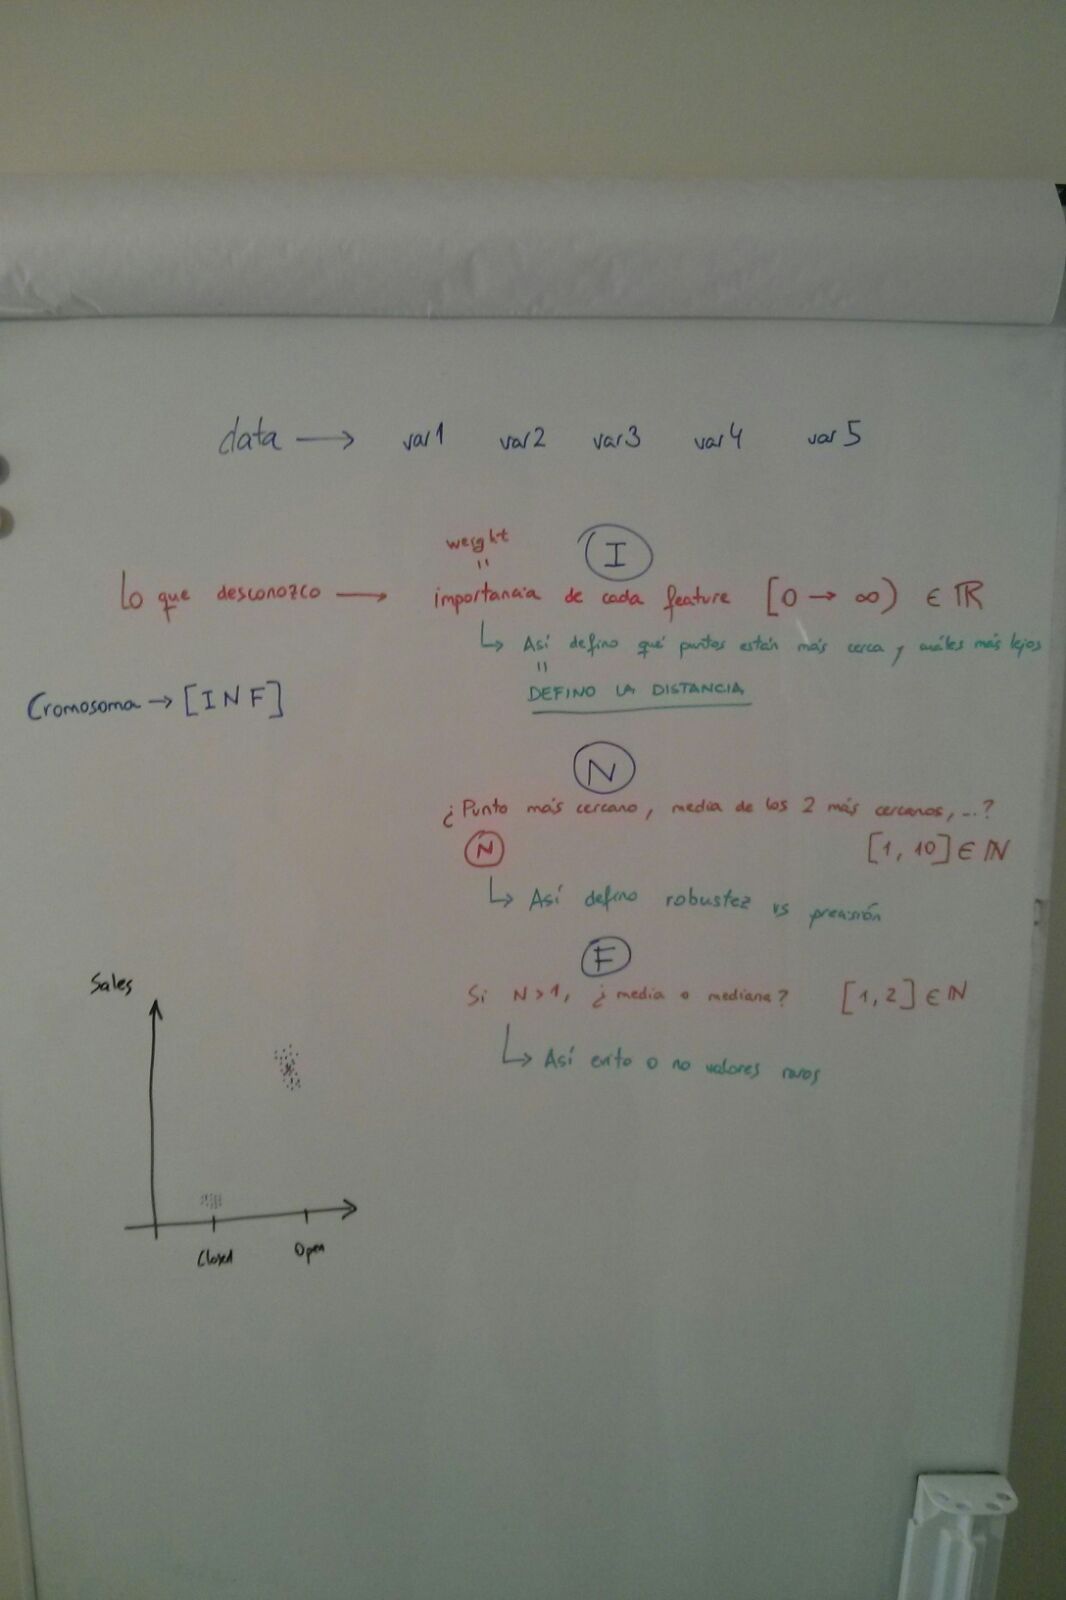 data → var1 var2 var3 var4 var5
weight
=
I
Lo que desconozco → importancia de cada feature [0 → ∞) ∈ ℝ
↳ Así defino qué puntos están más cerca y cuáles más lejos
=
DEFINO LA DISTANCIA
Cromosoma → [I N F]
N
¿Punto más cercano, media de los 2 más cercanos, ...?
N [1, 10] ∈ ℕ
↳ Así defino robustez vs precisión
F
Si N>1, ¿media o mediana? [1, 2] ∈ ℕ
↳ Así evito o no valores raros
Sales
Closed Open